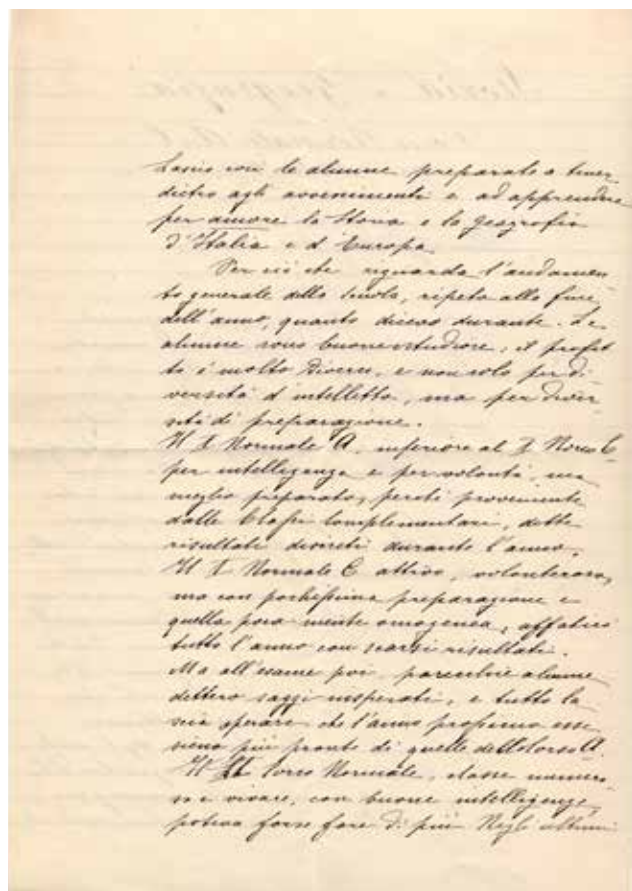 Lascio così le alunne preparate a tener
dietro agli avvenimenti e ad apprendere
per amore la Storia e la Geografia
d'Italia e d'Europa.
Per ciò che riguarda l'andamen-
to generale della Scuola, ripeto alla fine
dell'anno, quanto dicevo durante. Le
alunne sono buone e studiose, il profit
to è molto diverso, e non solo per di-
versità d'intelletto, ma per diver-
sità di preparazione.
Il I Normale A, inferiore al I Norm C
per intelligenza e per volontà, ma
meglio preparato, perchè proveniente
dalle Classi Complementari, dette
risultati discreti durante l'anno.
Il I Normale C attivo, volonteroso,
ma con pochissima preparazione e
quella poca niente omogenea, affaticò
tutto l'anno con scarsi risultati.
Ma all'esame poi, parecchie alunne
dettero saggi insperati, e tutto la
scia sperare che l'anno prossimo esse
sieno più pronte di quelle del Corso A.
Il Corso Normale, classe numero-
sa e vivace, con buone intelligenze
poteva forse fare di più. Negli ultimi